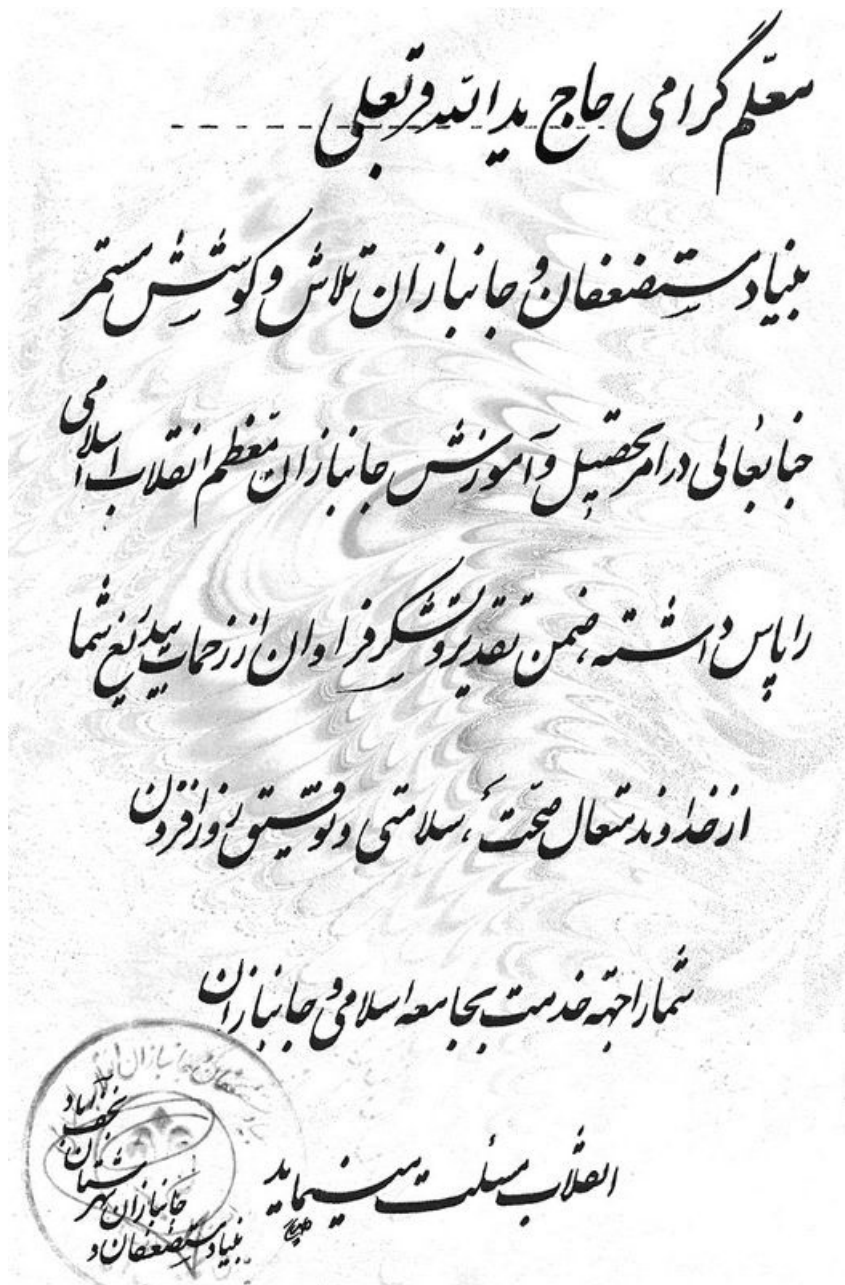 معلم گرامی حاج یداله قربعلی
بنیاد مستضعفان و جانبازان تلاش و کوشش مستمر
جنابعالی در امر تحصیل و آموزش جانبازان معظم انقلاب اسلامی
را پاس داشته، ضمن تقدیر و تشکر فراوان از زحمات بیدریغ شما
از خداوند متعال صحت، سلامتی و توفیق روزافزون
شما را جهة خدمت بجامعه اسلامی و جانبازان
انقلاب مسئلت مینماید
بنیاد مستضعفان و
جانبازان شهرستان
نجف آباد